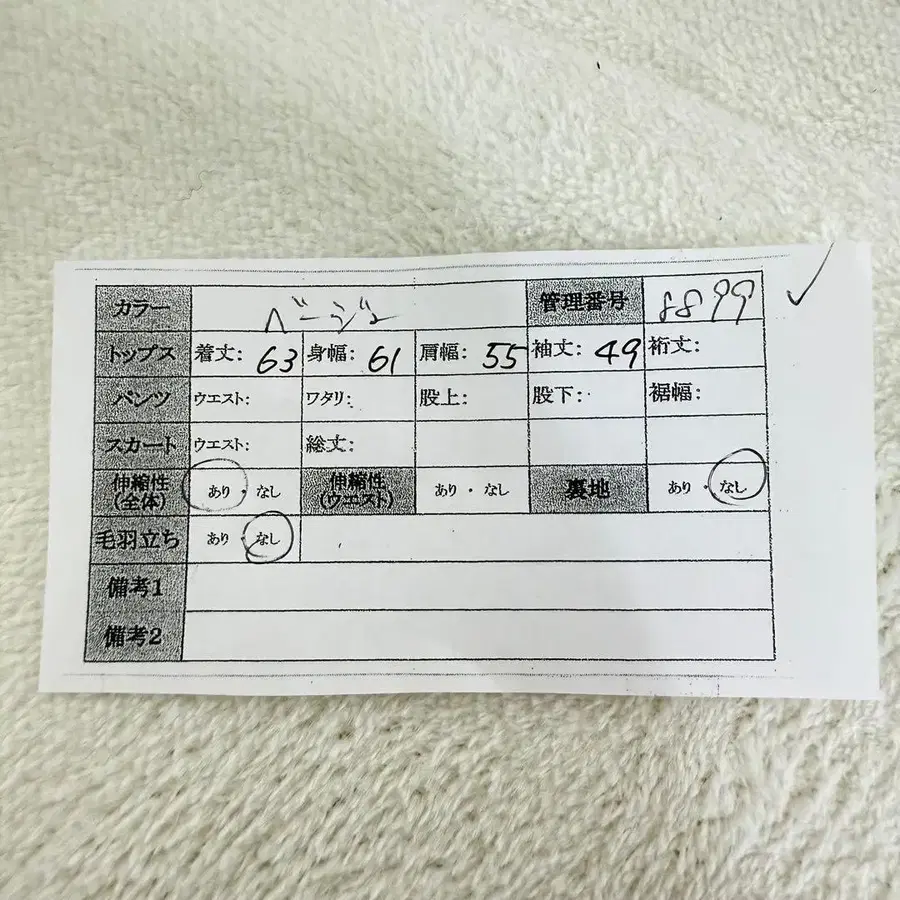 カラー ベージュ 管理番号 8899
トップス 着丈: 63 身幅: 61 肩幅: 55 袖丈: 49 裄丈:
パンツ ウエスト: ワタリ: 股上: 股下: 裾幅:
スカート ウエスト: 総丈:
伸縮性(全体) あり・なし 伸縮性(ウエスト) あり・なし 裏地 あり・なし
毛羽立ち あり・なし
備考1
備考2